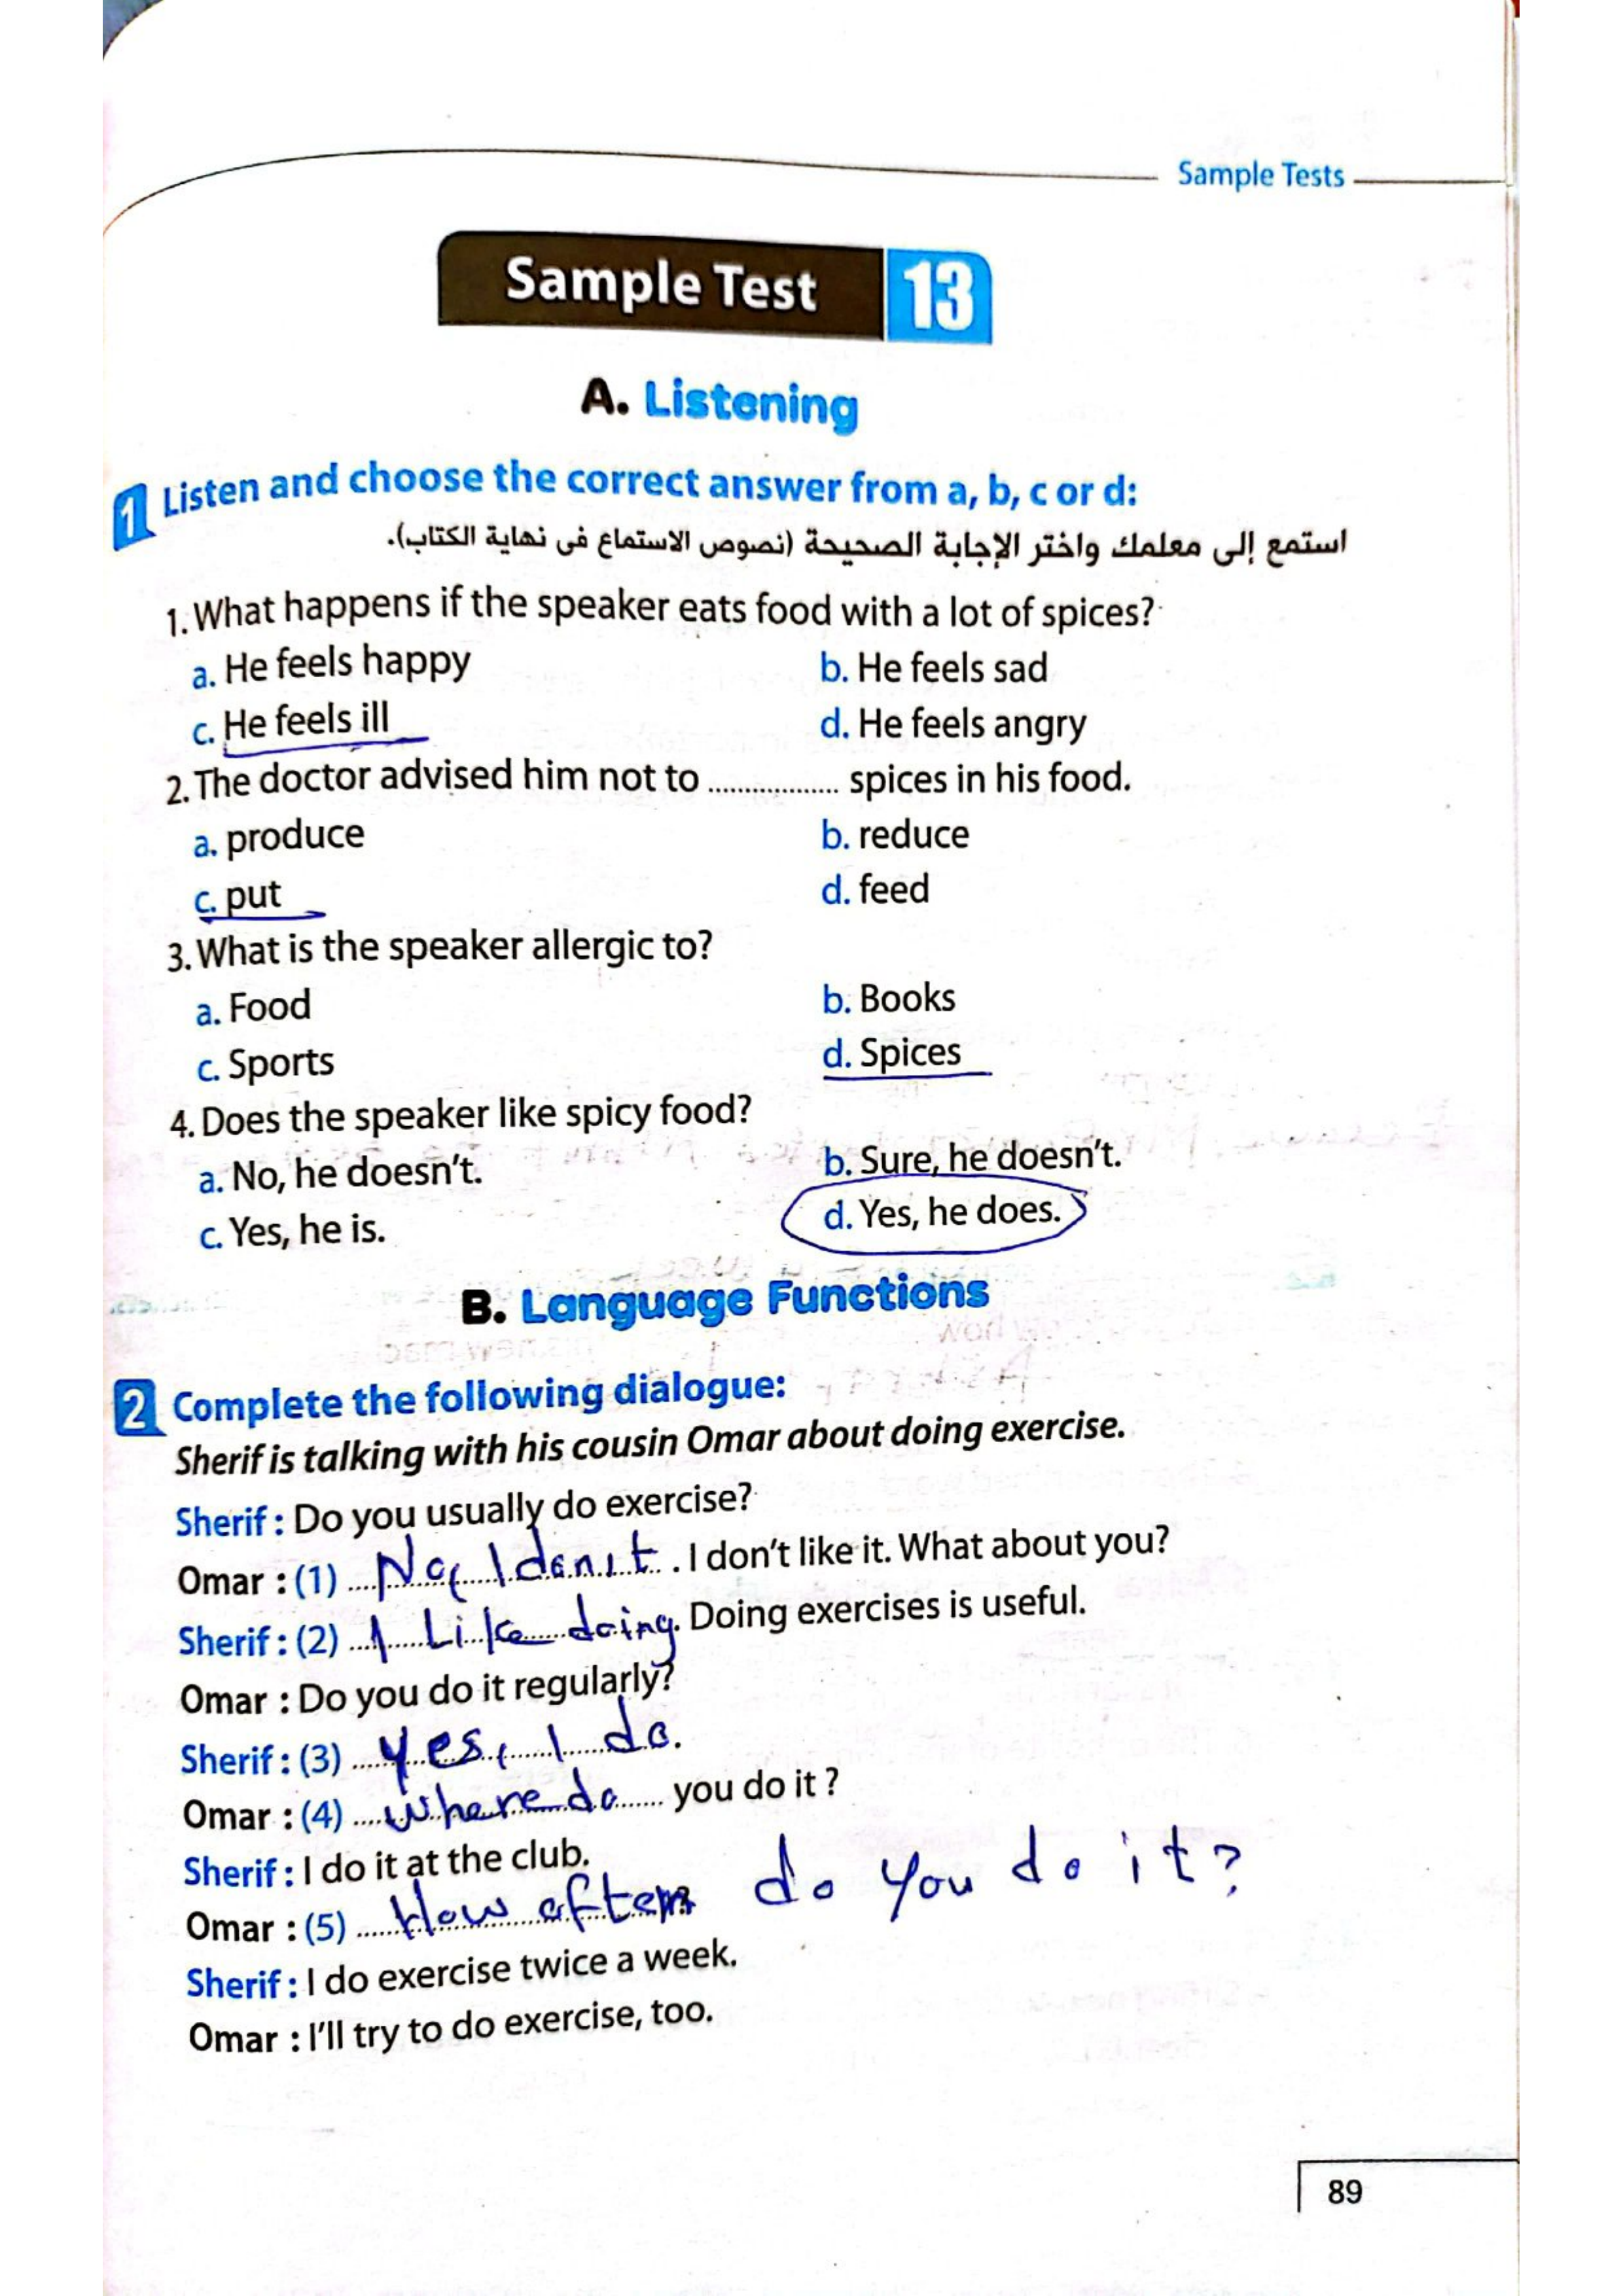 Sample Tests
Sample Test 13
A. Listening
1 Listen and choose the correct answer from a, b, c or d:
استمع إلى معلمك واختر الإجابة الصحيحة (نصوص الاستماع فى نهاية الكتاب).
1. What happens if the speaker eats food with a lot of spices?
a. He feels happy b. He feels sad
c. He feels ill d. He feels angry
2. The doctor advised him not to .................. spices in his food.
a. produce b. reduce
c. put d. feed
3. What is the speaker allergic to?
a. Food b. Books
c. Sports d. Spices
4. Does the speaker like spicy food?
a. No, he doesn't. b. Sure, he doesn't.
c. Yes, he is. d. Yes, he does.
B. Language Functions
2 Complete the following dialogue:
Sherif is talking with his cousin Omar about doing exercise.
Sherif : Do you usually do exercise?
Omar : (1) No, I don't. I don't like it. What about you?
Sherif : (2) I Like doing. Doing exercises is useful.
Omar : Do you do it regularly?
Sherif : (3) yes, I do.
Omar : (4) where do you do it ?
Sherif : I do it at the club.
Omar : (5) How often do you do it?
Sherif : I do exercise twice a week.
Omar : I'll try to do exercise, too.
89